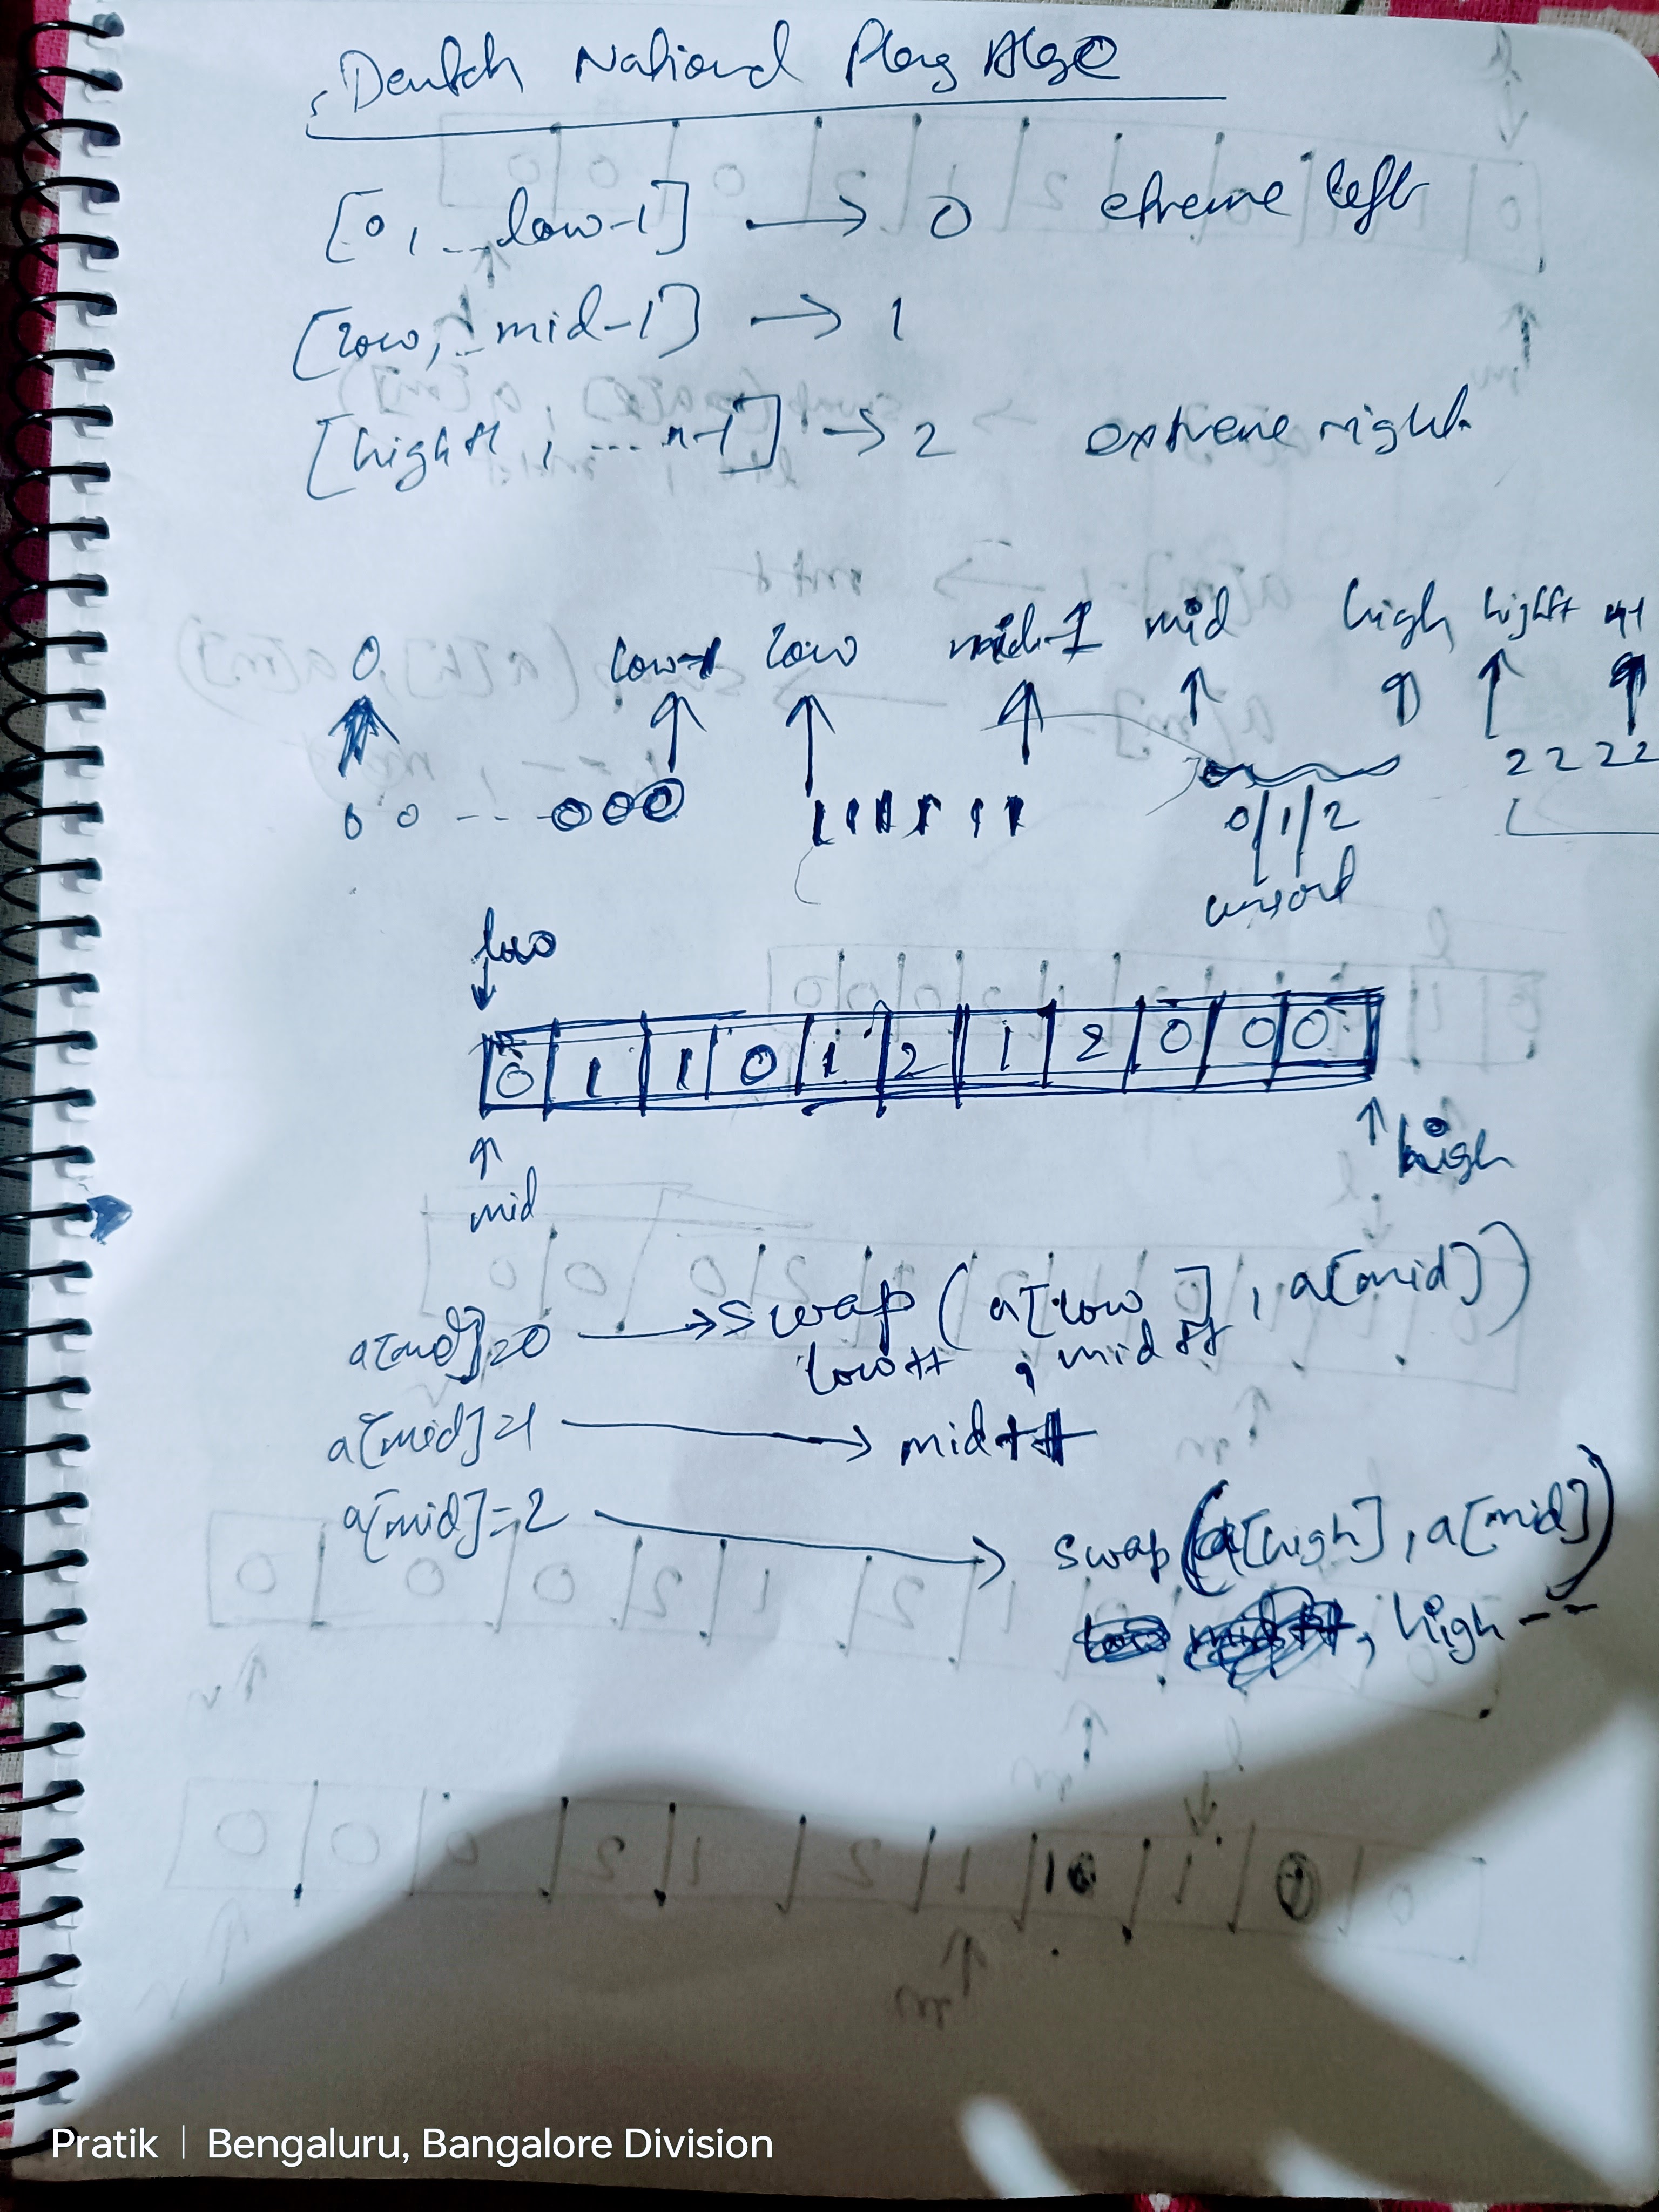 Deutch National Flag Algo
[0, ... low-1] → 0 etreme left
[low, .. mid-1] → 1
[high+1, .... n-1] → 2 extreme right
0 low-1 low mid-1 mid high high+1 n-1
2 2 2 2
0 0 - - - 0 0 0 1 1 1 1 1 1 0/1/2
unsort
low
0 1 1 0 1 2 1 2 0 0 0
high
mid
a[mid]=0 → swap (a[low], a[mid])
low++ ; mid++
a[mid]=1 → mid++
a[mid]=2 → swap (a[high], a[mid])
, high--
Pratik | Bengaluru, Bangalore Division